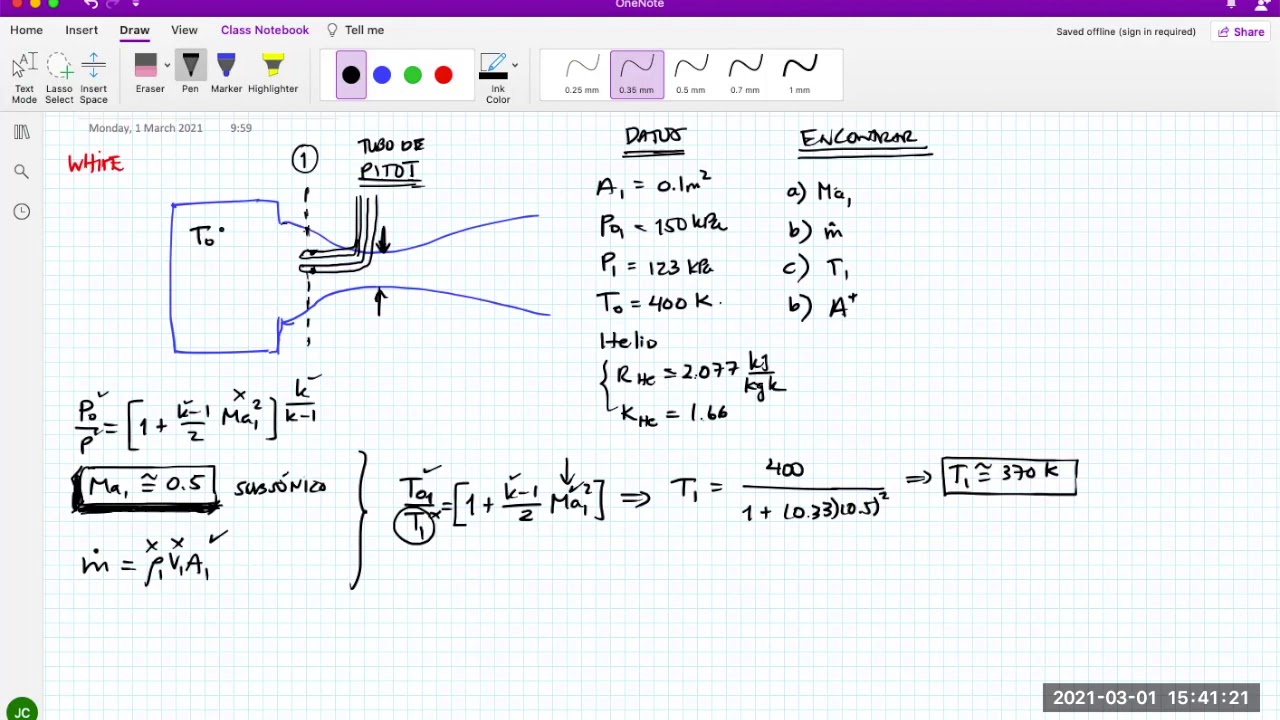 OneNote
Home Insert Draw View Class Notebook Tell me
Saved offline (sign in required) Share
Text Mode
Lasso Select
Insert Space
Eraser
Pen
Marker
Highlighter
Ink Color
0.25 mm
0.35 mm
0.5 mm
0.7 mm
1 mm
Monday, 1 March 2021 9:59
WHITE
1
TUBO DE
PITOT
T₀
DATOS
A₁ = 0.1m²
P₀₁ = 150 kPa
P₁ = 123 kPa
T₀ = 400 K.
Helio
R_He = 2.077 kJ/kg k
K_He = 1.66
ENCONTRAR
a) Ma₁
b) ṁ
c) T₁
b) A*
P₀/P = [1 + k-1/2 Ma₁²]^k/k-1
Ma₁ ≅ 0.5 SUBSÓNICO
ṁ = ρ₁V₁A₁
T₀₁/T₁ = [1 + k-1/2 Ma₁²] ⇒ T₁ = 400/1 + (0.33)(0.5)² ⇒ T₁ ≅ 370 K
JC
2021-03-01 15:41:21